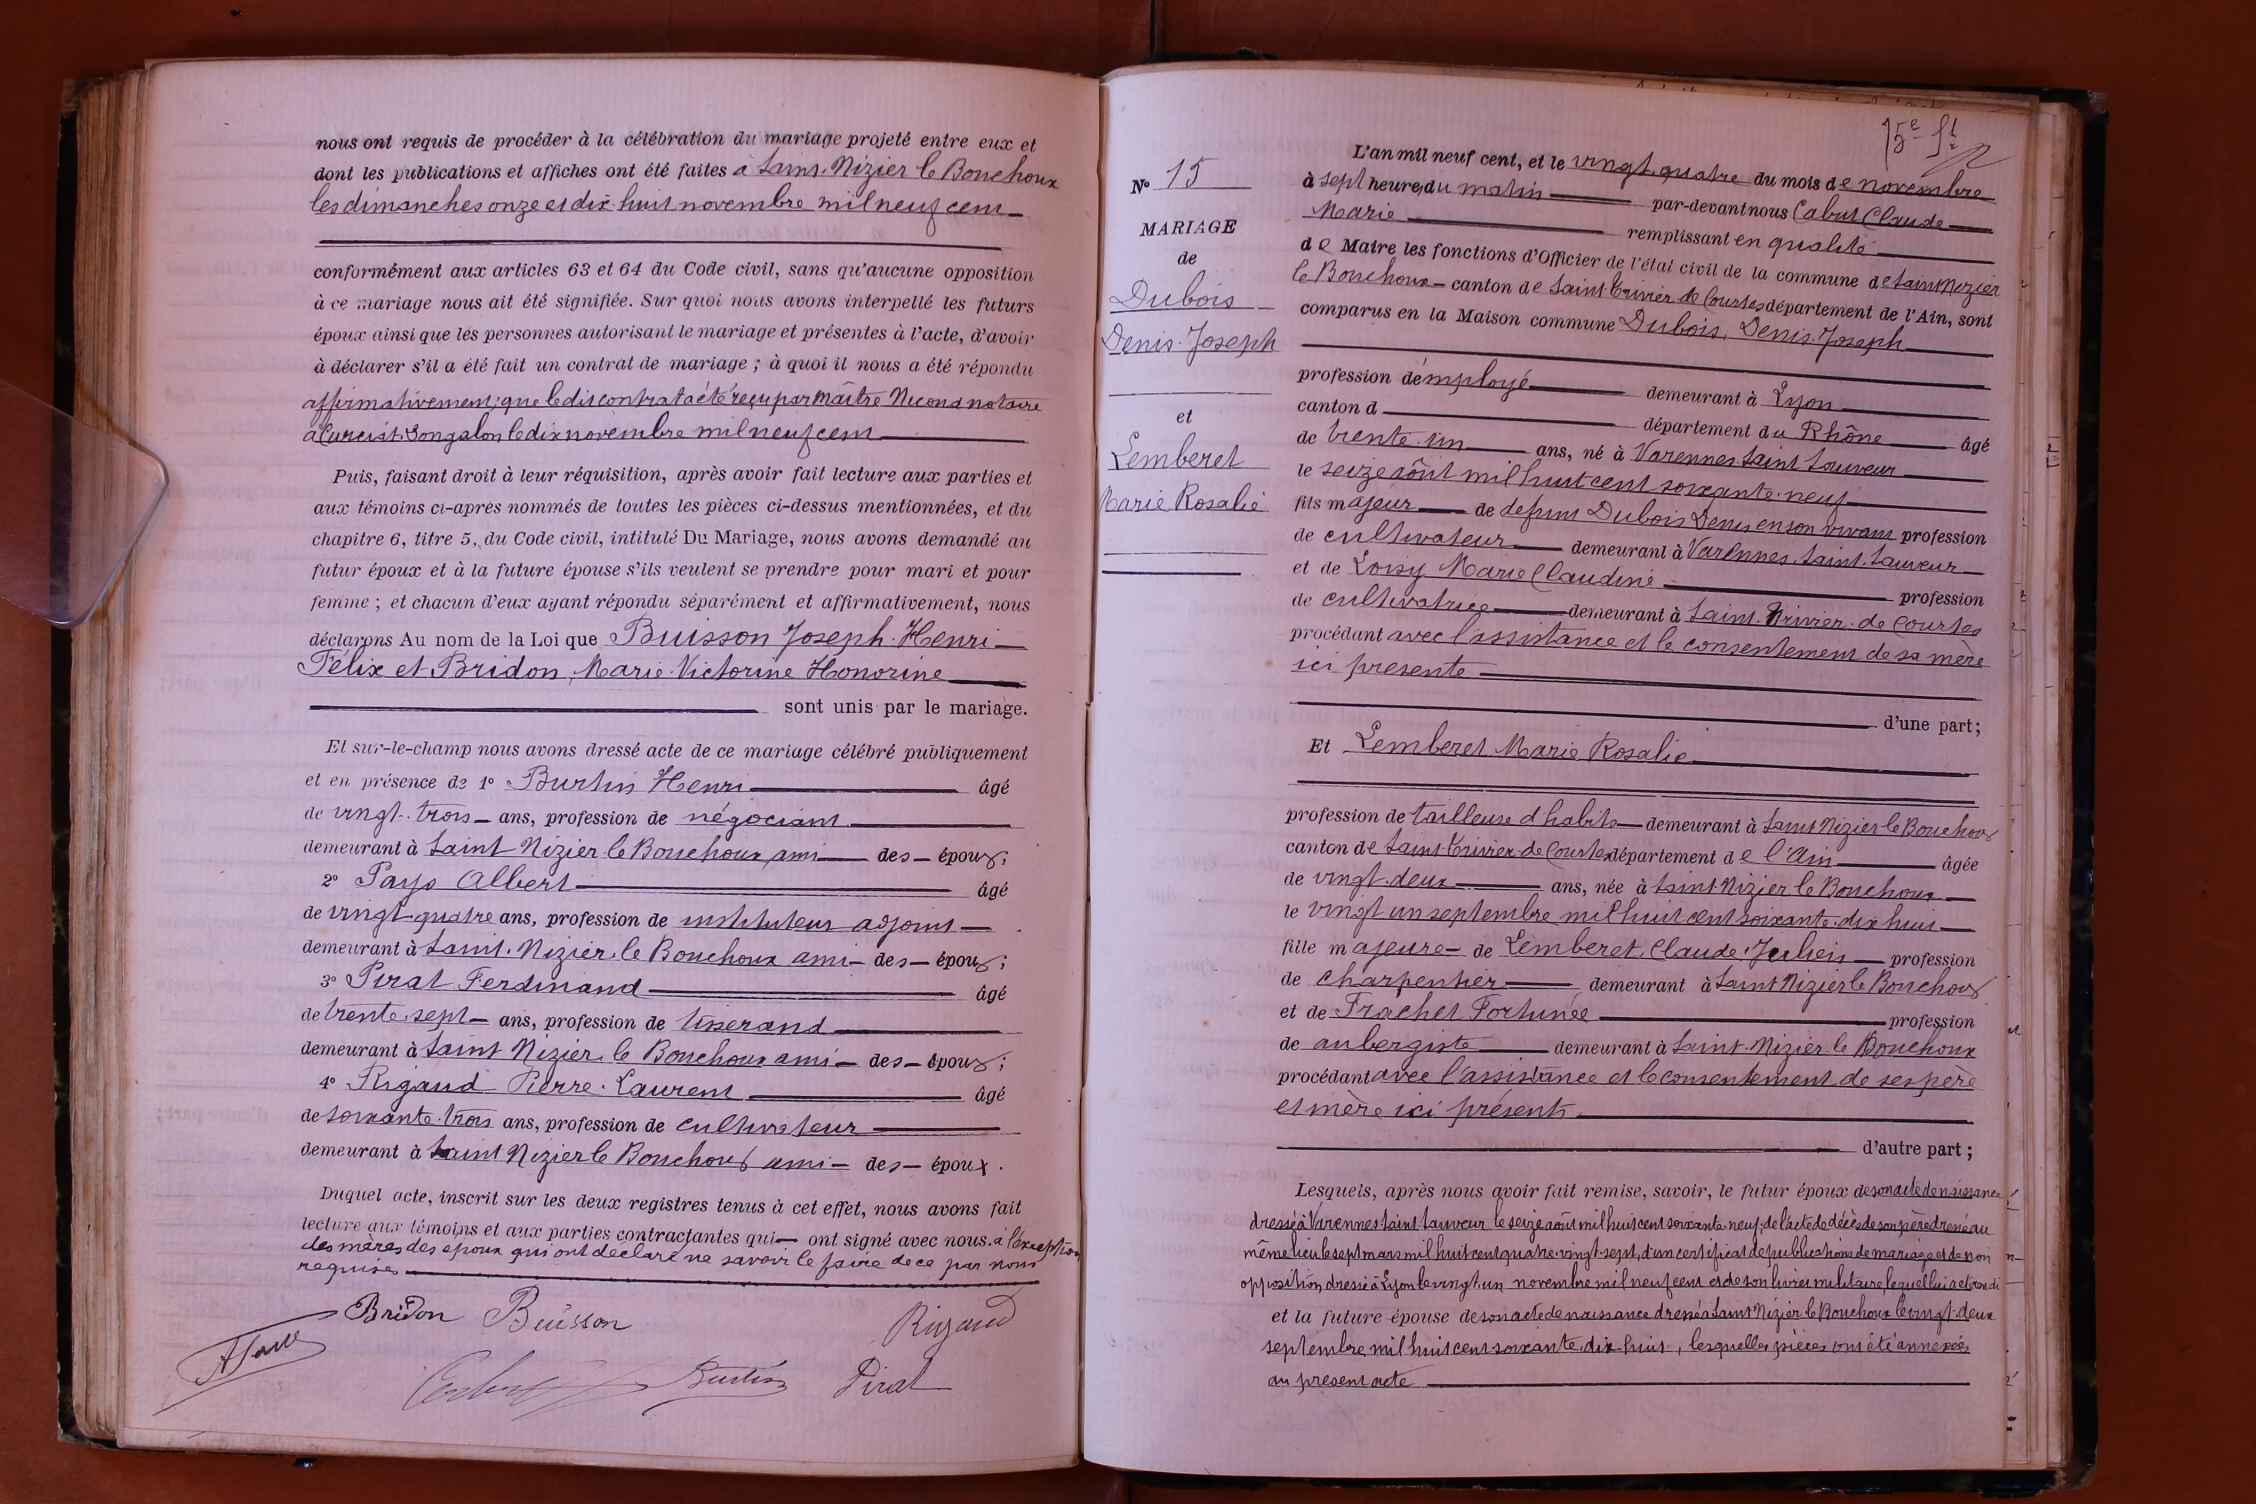 nous ont requis de procéder à la célébration du mariage projeté entre eux et
dont les publications et affiches ont été faites à Saint-Nizier le Bouchoux
les dimanches onze et dix-huit novembre mil neuf cent
conformément aux articles 63 et 64 du Code civil, sans qu'aucune opposition
à ce mariage nous ait été signifiée. Sur quoi nous avons interpellé les futurs
époux ainsi que les personnes autorisant le mariage et présentes à l'acte, d'avoir
à déclarer s'il a été fait un contrat de mariage ; à quoi il nous a été répondu
affirmativement, que le dit contrat a été reçu par Maître Nicond notaire
à Curciat-Dongalon le dix novembre mil neuf cent
Puis, faisant droit à leur réquisition, après avoir fait lecture aux parties et
aux témoins ci-après nommés de toutes les pièces ci-dessus mentionnées, et du
chapitre 6, titre 5, du Code civil, intitulé Du Mariage, nous avons demandé au
futur époux et à la future épouse s'ils veulent se prendre pour mari et pour
femme ; et chacun d'eux ayant répondu séparément et affirmativement, nous
déclarons Au nom de la Loi que Buisson Joseph-Henri
Félix et Bridon, Marie-Victorine Honorine
sont unis par le mariage.
Et sur-le-champ nous avons dressé acte de ce mariage célébré publiquement
et en présence de 1° Burtin Henri âgé
de vingt-trois ans, profession de négociant
demeurant à Saint Nizier le Bouchoux ami des époux ;
2° Pays Albert âgé
de vingt-quatre ans, profession de instituteur adjoint
demeurant à Saint-Nizier-le Bouchoux ami des époux ;
3° Pirat Ferdinand âgé
de trente-sept ans, profession de tisserand
demeurant à Saint Nizier-le Bouchoux ami des époux ;
4° Rigaud Pierre-Laurent âgé
de soixante-trois ans, profession de cultivateur
demeurant à Saint Nizier le Bouchoux ami des époux.
Duquel acte, inscrit sur les deux registres tenus à cet effet, nous avons fait
lecture aux témoins et aux parties contractantes qui ont signé avec nous à l'exception
des mères des époux qui ont déclaré ne savoir le faire de ce par nous
requises
Bridon Buisson Rigaud
Burtin Pirat
15e ft
N° 15
MARIAGE
de
Dubois
Denis-Joseph
et
Lemberet
Marie Rosalie
L'an mil neuf cent, et le vingt-quatre du mois de novembre
à sept heures du matin par-devant nous Cabut Claude
Marie remplissant en qualité
de Maire les fonctions d'Officier de l'état civil de la commune de Saint Nizier
le Bouchoux canton de Saint Trivier de Courtes département de l'Ain, sont
comparus en la Maison commune Dubois, Denis-Joseph
profession d'employé demeurant à Lyon
canton d département du Rhône âgé
de trente-un ans, né à Varennes-Saint Sauveur
le seize août mil huit cent soixante-neuf
fils majeur de defunt Dubois Denis en son vivant profession
de cultivateur demeurant à Varennes-Saint-Sauveur
et de Loisy Marie Claudine profession
de cultivatrice demeurant à Saint-Trivier-de Courtes
procédant avec l'assistance et le consentement de sa mère
ici presente
d'une part ;
Et Lemberet Marie Rosalie
profession de tailleuse d'habits demeurant à Saint Nizier le Bouchoux
canton de Saint-Trivier-de Courtes département de l'Ain âgée
de vingt-deux ans, née à Saint-Nizier le Bouchoux
le vingt un septembre mil huit cent soixante-dix huit
fille majeure de Lemberet, Claude-Julien profession
de charpentier demeurant à Saint Nizier le Bouchoux
et de Frachet Fortunée profession
de aubergiste demeurant à Saint-Nizier le Bouchoux
procédant avec l'assistance et le consentement de ses père
et mère ici présents
d'autre part ;
Lesquels, après nous avoir fait remise, savoir, le futur époux de son acte de naissance
dressé à Varennes Saint Sauveur le seize août mil huit cent soixante-neuf, de l'acte de décès de son père dressé au
même lieu le sept mars mil huit cent quatre-vingt-sept, d'un certificat de publications de mariage et de non
opposition dressé à Lyon le vingt-un novembre mil neuf cent et de son livret militaire, lequel lui a été rendu
et la future épouse de son acte de naissance dressé à Saint Nizier le Bouchoux le vingt-deux
septembre mil huit cent soixante-dix-huit, lesquelles pièces ont été annexées
au présent acte